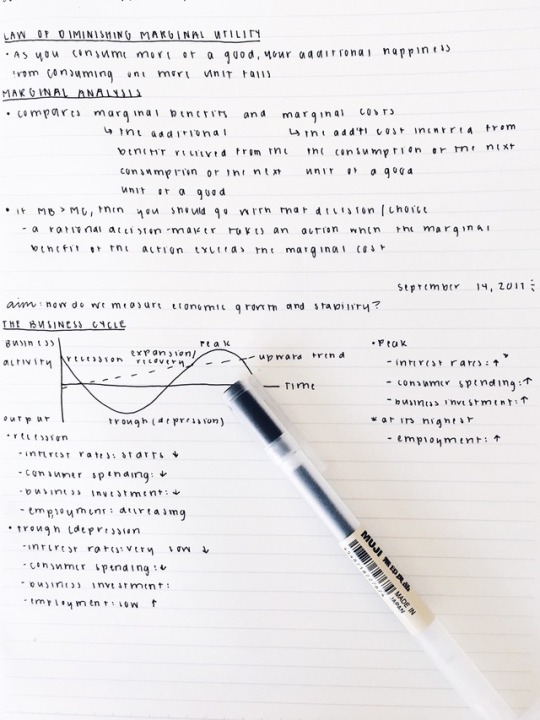 LAW OF DIMINISHING MARGINAL UTILITY
• As you consume more of a good, your additional happiness
from consuming one more unit falls
MARGINAL ANALYSIS
• compares marginal benefits and marginal costs
↳ the additional
benefit recieved from the
consumption of the next
unit of a good
↳ the add'tl cost incurred from
the consumption of the next
unit of a good
• if MB > MC, then you should go with that decision/choice
- a rational decision-maker takes an action when the marginal
benefit of the action exceeds the marginal cost
September 14, 2017
aim: how do we measure economic growth and stability?
THE BUSINESS CYCLE
Business
activity
output
recession
expansion/
recovery
peak
upward trend
Time
trough (depression)
• peak
- interest rates: ↑*
- consumer spending: ↑
- business investment: ↑
* at its highest
- employment: ↑
• recession
- interest rates: starts ↓
- consumer spending: ↓
- business investment: ↓
- employment: decreasing
• trough (depression
- interest rates: very low ↓
- consumer spending: ↓
- business investment:
- employment: low ↑
MUJI 無印良品
MADE IN
JAPAN